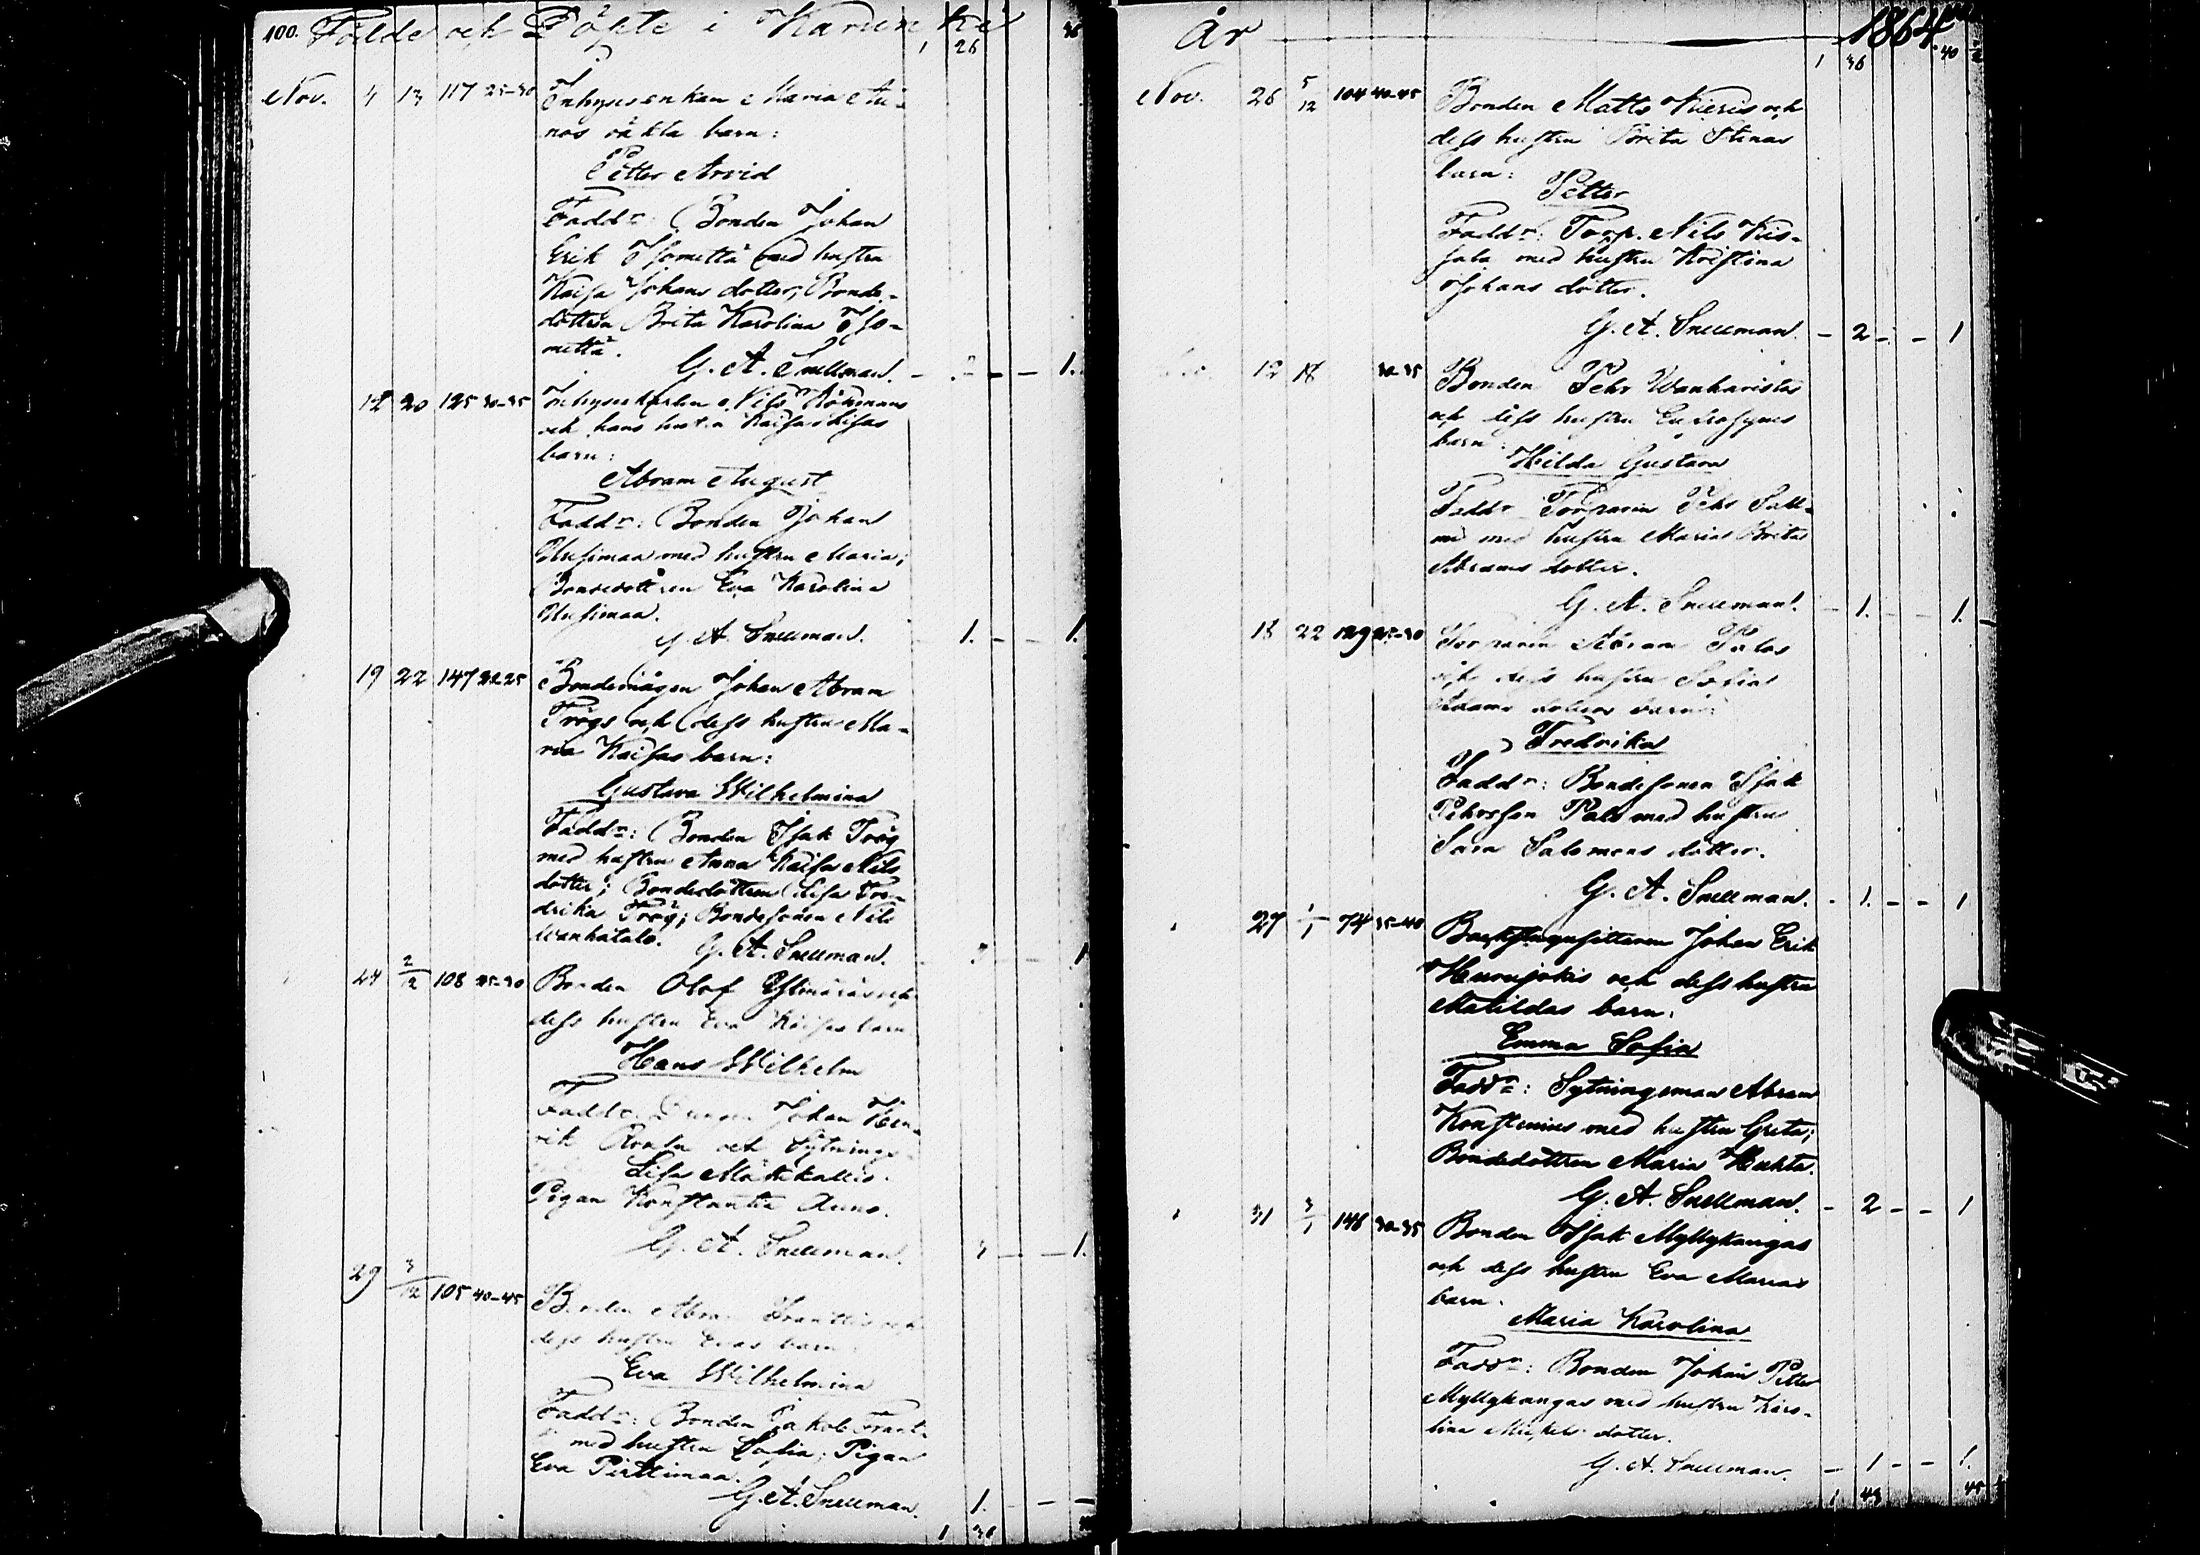 100. Födde och Döpte i Karunki
1 26 36
Nov. 4 13 117 25-30 Inhysesenkan Maria Au-
nos oäkta barn:
Petter Arvid
Faddr: Bonden Johan
Erik Isomettä med hustru
Kaisa Johans dotter; Bonde-
dottren Brita Karolina Iso-
mettä.
G. A. Snellman. - - - 1.
12 20 125 30-35 Inhyseskarlen Nils
och hans hustru Kaisa Lisas
barn:
Abram August
Faddr: Bonden Johan
Uusimaa med hustru Maria;
Bondedottren Eva Karolina
Uusimaa.
G. A. Snellman. 1. - 1.
19 22 147 22-25 Bondemågen Johan Abram
Frögs och dess hustru Ma-
ria Kaisas barn:
Gustava Wilhelmina
Faddr: Bonden Isak Frög
med hustru Anna Kaisa Nils
dotter; Bondedottren Lisa Fre-
drika Frög; Bondesonen Nils
Wanhatalo.
G. A. Snellman. 1
24 2/12 108 25-30 Bonden Olof och
dess hustru Eva Kaisas barn
Hans Wilhelm
Faddr: Johan Hen-
rik och Sytnings-
Lisa
Pigan Konstantia Auno.
G. A. Snellman. 1.
29 3/12 105 40-45 Bonden Abram och
dess hustru Evas barn:
Eva Wilhelmina
Faddr: Bonden Jakob Frant-
med hustru Sofia; Pigan
Eva Pirttimaa.
G. A. Snellman. 1. - -
1 36
År 1864
1 36 40
Nov. 26 5/12 104 40-45 Bonden Matts Kieris och
dess hustru Brita Stinas
barn:
Petter
Faddr: Torp. Nils Kus-
sala med hustru Kristina
Johans dotter.
G. A. Snellman. - 2 - - 1
12 18 30-35 Bonden Pehr Wanharistas
och dess hustru Eufrosynes
barn:
Hilda Gustava
Faddr Torparen Pehr
med hustru Maria Brita
Abrams dotter.
G. A. Snellman. - 1. - - 1.
18 22 129 25-30 Torparen Abram Palos
och dess hustru Sofia
Adams dotters barn:
Fredrika
Faddr: Bondesonen Isak
Pehrsson Palo med hustru
Sara Salomons dotter.
G. A. Snellman. - 1. - - 1
27 1/1 74 35-40 Backstugusittaren Johan Erik
Hurujokis och dess hustru
Matildas barn:
Emma Sofia
Faddr: Sytningsman Abram
Konstenius med hustru Greta;
Bondedottren Maria Huhta.
G. A. Snellman. - 2 - - 1
31 3/1 146 30-35 Bonden Isak Myllykangas
och dess hustru Eva Marias
barn.
Maria Karolina
Faddr: Bonden Johan Petter
Myllykangas med hustru Karo-
lina Mickels dotter.
G. A. Snellman. - 1 - - 1.
1 43 45